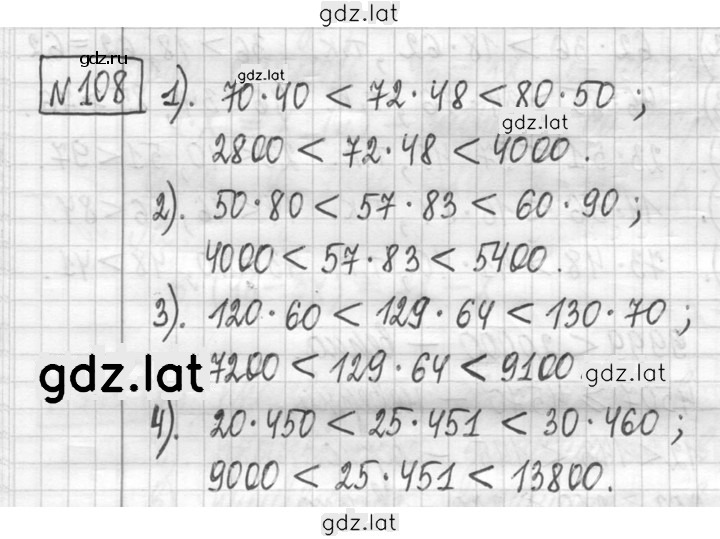 gdz.lat
gdz.ru
gdz.lat
№ 108 1). 70·40 < 72·48 < 80·50 ;
gdz.lat
2800 < 72·48 < 4000 .
2). 50·80 < 57·83 < 60·90 ;
4000 < 57·83 < 5400 .
3). 120·60 < 129·64 < 130·70 ;
gdz.lat 7200 < 129·64 < 9100 gdz.lat
4). 20·450 < 25·451 < 30·460 ;
9000 < 25·451 < 13800.
gdz.lat